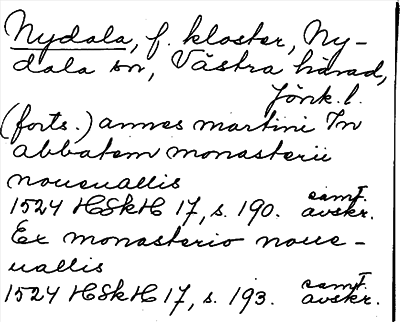 Nydala, f. kloster, Ny-
dala sn, Västra härad,
Jönk. l.
(forts.) annes martini In
abbatem monasterii
noueuallis
1524 HSkH 17, s. 190. samt. avskr.
Ex monasterio noue-
uallis
1524 HSkH 17, s. 193. samt. avskr.